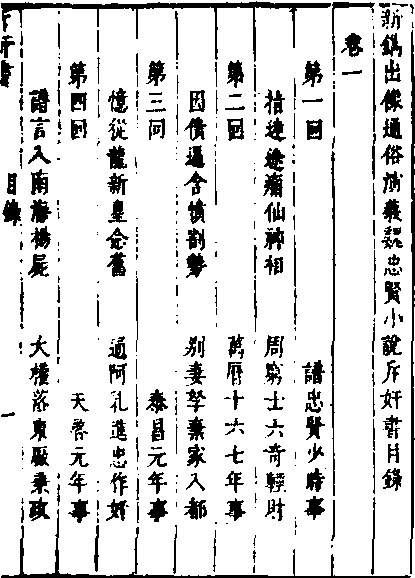 新鐫出像通俗演義魏忠賢小說斥奸書目錄
卷一
第一回 譜忠賢少時事
指迷途仙神相 周窮士六奇輕財
第二回 萬曆十六七年事
因債逼含憤割勢 別妻孥棄家入都
第三回 泰昌元年事
憶從龍新皇念舊 通阿乳進忠作奸
第四回 天啓元年事
譖言入南海揚屍 大權落東廠秉政
斥奸書 目錄 一